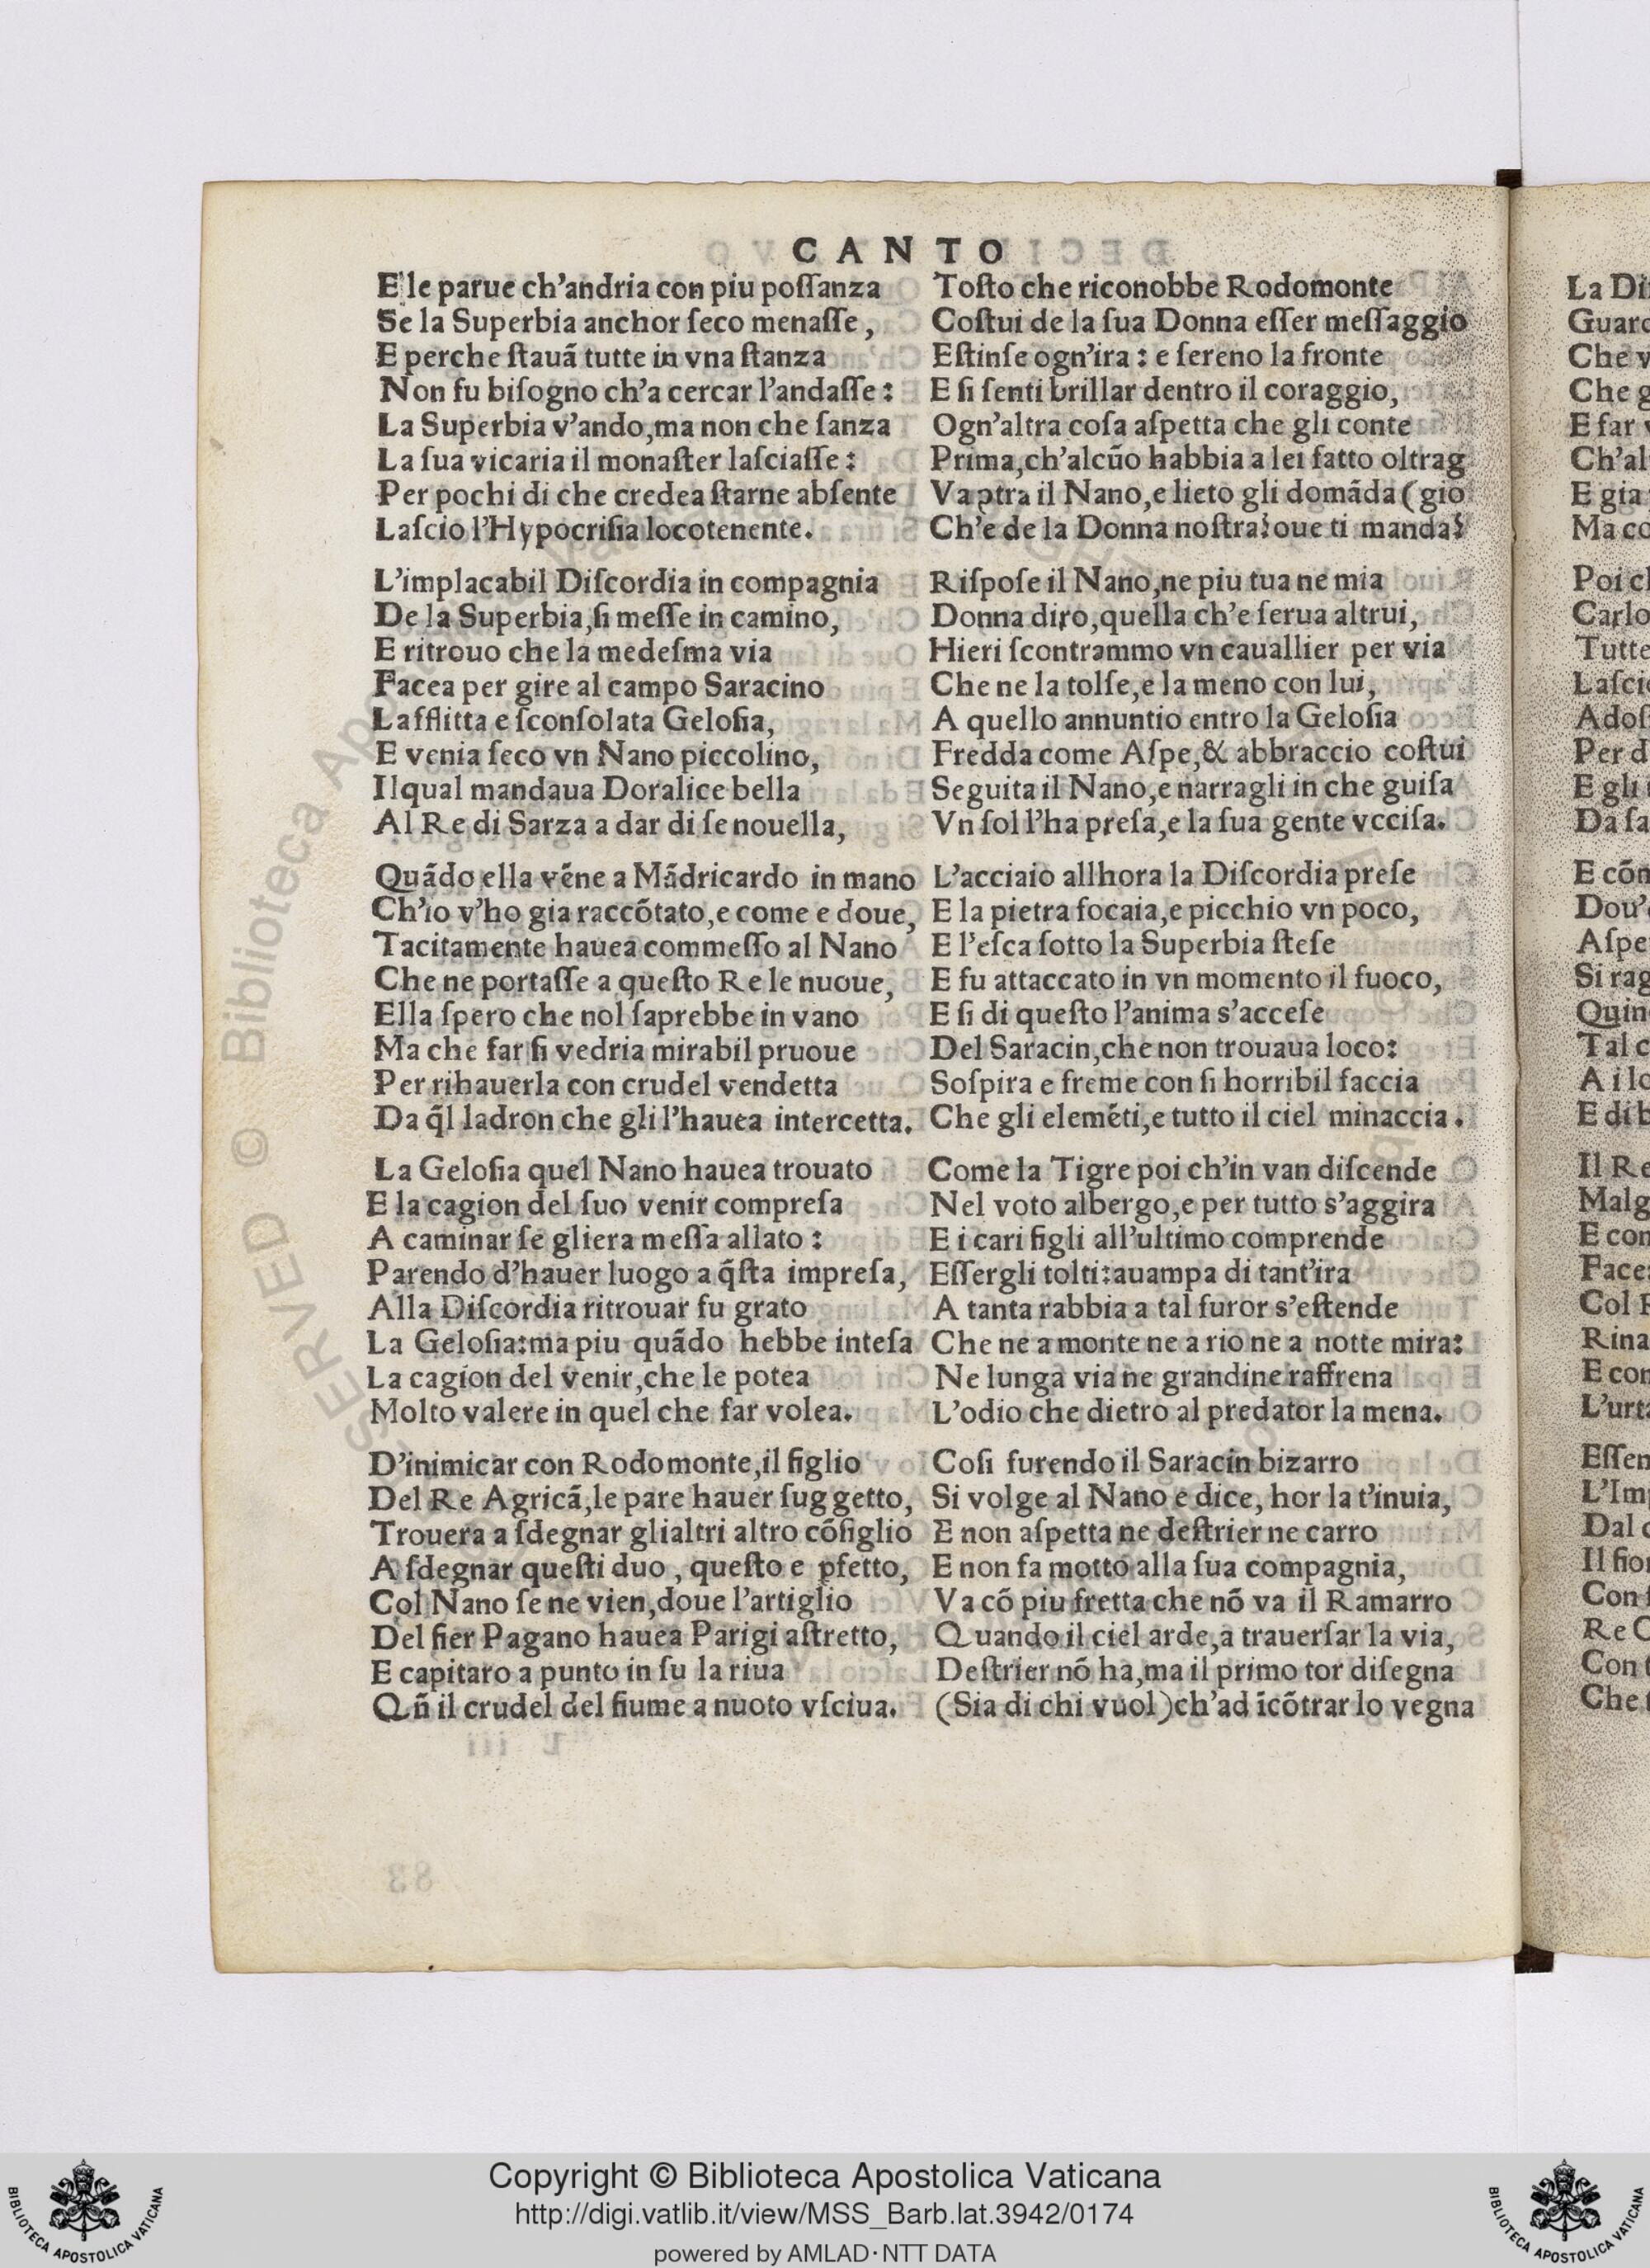 CANTO
E le parue ch'andria con piu poſſanza
Se la Superbia anchor ſeco menaſſe,
E perche ſtauã tutte in vna ſtanza
Non fu biſogno ch'a cercar l'andaſſe:
La Superbia v'ando,ma non che ſanza
La ſua vicaria il monaſter laſciaſſe:
Per pochi di che credea ſtarne abſente
Laſcio l'Hypocriſia locotenente.
L'implacabil Diſcordia in compagnia
De la Superbia,ſi meſſe in camino,
E ritrouo che la medeſma via
Facea per gire al campo Saracino
Lafflitta e ſconſolata Geloſia,
E venia ſeco vn Nano piccolino,
Ilqual mandaua Doralice bella
Al Re di Sarza a dar di ſe nouella,
Quãdo ella vẽne a Mãdricardo in mano
Ch'io v'ho gia raccõtato,e come e doue,
Tacitamente hauea commeſſo al Nano
Che ne portaſſe a queſto Re le nuoue,
Ella ſpero che nol ſaprebbe in vano
Ma che far ſi vedria mirabil pruoue
Per rihauerla con crudel vendetta
Da q̃l ladron che gli l'hauea intercetta.
La Geloſia quel Nano hauea trouato
E la cagion del ſuo venir compreſa
A caminar ſe gliera meſſa allato:
Parendo d'hauer luogo a q̃ſta impreſa,
Alla Diſcordia ritrouar fu grato
La Geloſia:ma piu quãdo hebbe inteſa
La cagion del venir,che le potea
Molto valere in quel che far volea.
D'inimicar con Rodomonte,il figlio
Del Re Agricã,le pare hauer ſuggetto,
Trouera a ſdegnar glialtri altro cõſiglio
A ſdegnar queſti duo, queſto e ꝑfetto,
Col Nano ſe ne vien,doue l'artiglio
Del fier Pagano hauea Parigi aſtretto,
E capitaro a punto in ſu la riua
Qñ il crudel del fiume a nuoto vſciua.
Toſto che riconobbe Rodomonte
Coſtui de la ſua Donna eſſer meſſaggio
Eſtinſe ogn'ira: e ſereno la fronte
E ſi ſenti brillar dentro il coraggio,
Ogn'altra coſa aſpetta che gli conte
Prima,ch'alcũo habbia a lei fatto oltrag
Va ꝯtra il Nano,e lieto gli domãda (gio
Ch'e de la Donna noſtra?oue ti manda?
Riſpoſe il Nano,ne piu tua ne mia
Donna diro,quella ch'e ſerua altrui,
Hieri ſcontrammo vn cauallier per via
Che ne la tolſe,e la meno con lui,
A quello annuntio entro la Geloſia
Fredda come Aſpe,& abbraccio coſtui
Seguita il Nano,e narragli in che guiſa
Vn ſol l'ha preſa,e la ſua gente vcciſa.
L'acciaio allhora la Diſcordia preſe
E la pietra focaia,e picchio vn poco,
E l'eſca ſotto la Superbia ſteſe
E fu attaccato in vn momento il fuoco,
E ſi di queſto l'anima s'acceſe
Del Saracin,che non trouaua loco:
Soſpira e freme con ſi horribil faccia
Che gli elemẽti,e tutto il ciel minaccia.
Come la Tigre poi ch'in van diſcende
Nel voto albergo,e per tutto s'aggira
E i cari figli all'ultimo comprende
Eſſergli tolti:auampa di tant'ira
A tanta rabbia a tal furor s'eſtende
Che ne a monte ne a rio ne a notte mira:
Ne lunga via ne grandine raffrena
L'odio che dietro al predator la mena.
Coſi furendo il Saracin bizarro
Si volge al Nano e dice, hor la t'inuia,
E non aſpetta ne deſtrier ne carro
E non fa motto alla ſua compagnia,
Va cõ piu fretta che nõ va il Ramarro
Quando il ciel arde,a trauerſar la via,
Deſtrier nõ ha,ma il primo tor diſegna
(Sia di chi vuol)ch'ad ĩcõtrar lo vegna
La Di
Guard
Che v
Che g
E far v
Ch'al
E gia
Ma co
Poi ch
Carlo
Tutte
Laſcio
Adoſ
Per d
E gli
Da ſa
E cõm
Dou'
Aſpe
Si rag
Quin
Tal c
A i lo
E di b
Il Re
Malg
E con
Face
Col R
Rina
E con
L'urta
Eſſen
L'Im
Dal c
Il fio
Con
Re C
Con
Che
SERVED © Biblioteca Apo
Copyright © Biblioteca Apostolica Vaticana
http://digi.vatlib.it/view/MSS_Barb.lat.3942/0174
powered by AMLAD·NTT DATA
BIBLIOTECA APOSTOLICA VATICANA
BIBLIOTECA APOSTOLICA VATICANA